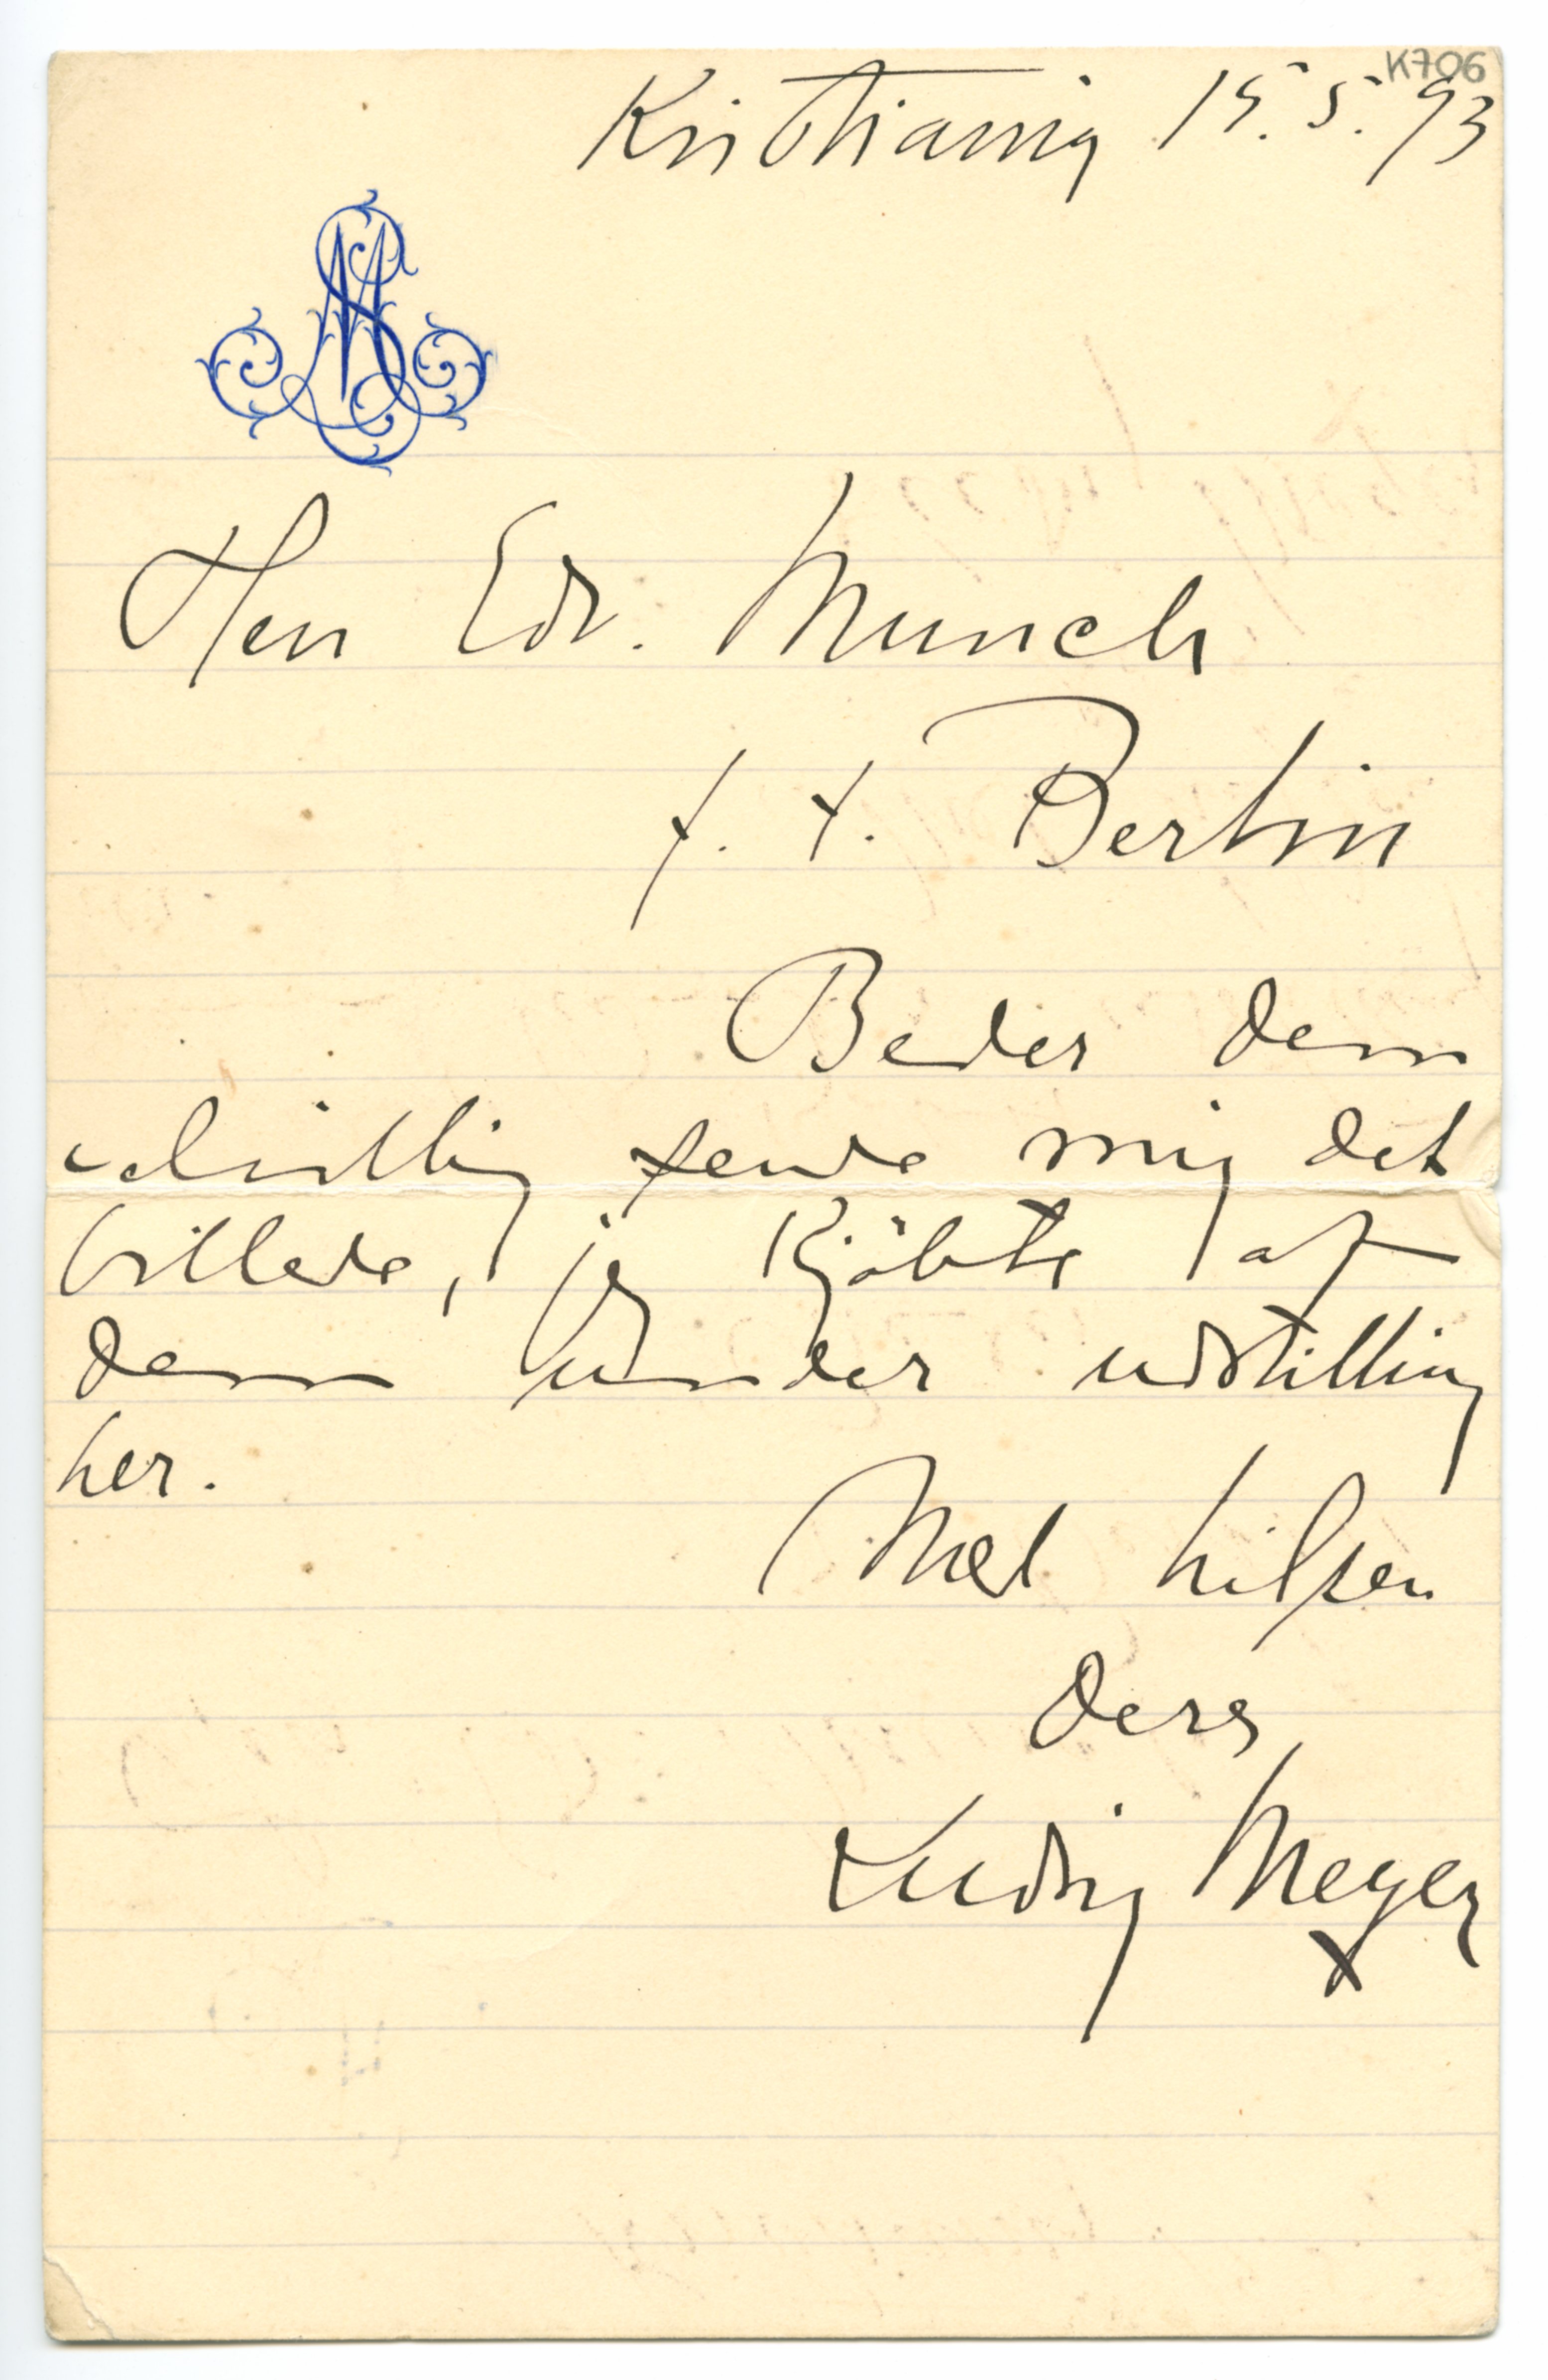 K706
Kristiania 15.5.93
Herr Edv. Munch
p. t. Berlin
Beder dem
velvilligt sende mig det
billede, jeg kjøbte af
dem under udstilling
her.
Med hilsen
deres
Ludvig Meyer